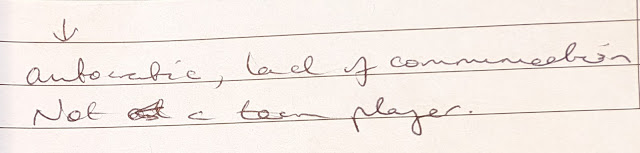 ↓
autocratic, lack of communication
Not a team player.